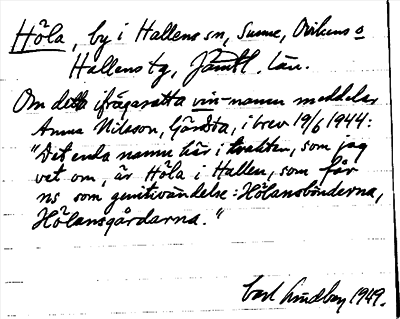 Höla, by i Hallens sn, Sunne, Ovikens o
Hallens tg, Jämtl. län.
Om detta ifrågasatta vin-namn meddelar
Anna Nilsson, Gärdsta, i brev 19/6 1944:
"Det enda namn här i trakten, som jag
vet om, är Höla i Hallen, som får
ns som genitivändelse: Hölansbönderna,
Hölansgårdarna."
Carl Lindberg 1949.